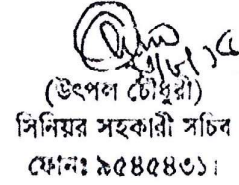 (উৎপল চৌধুরী)
সিনিয়র সহকারী সচিব
ফোনঃ ৯৫৪৫৪৩১।